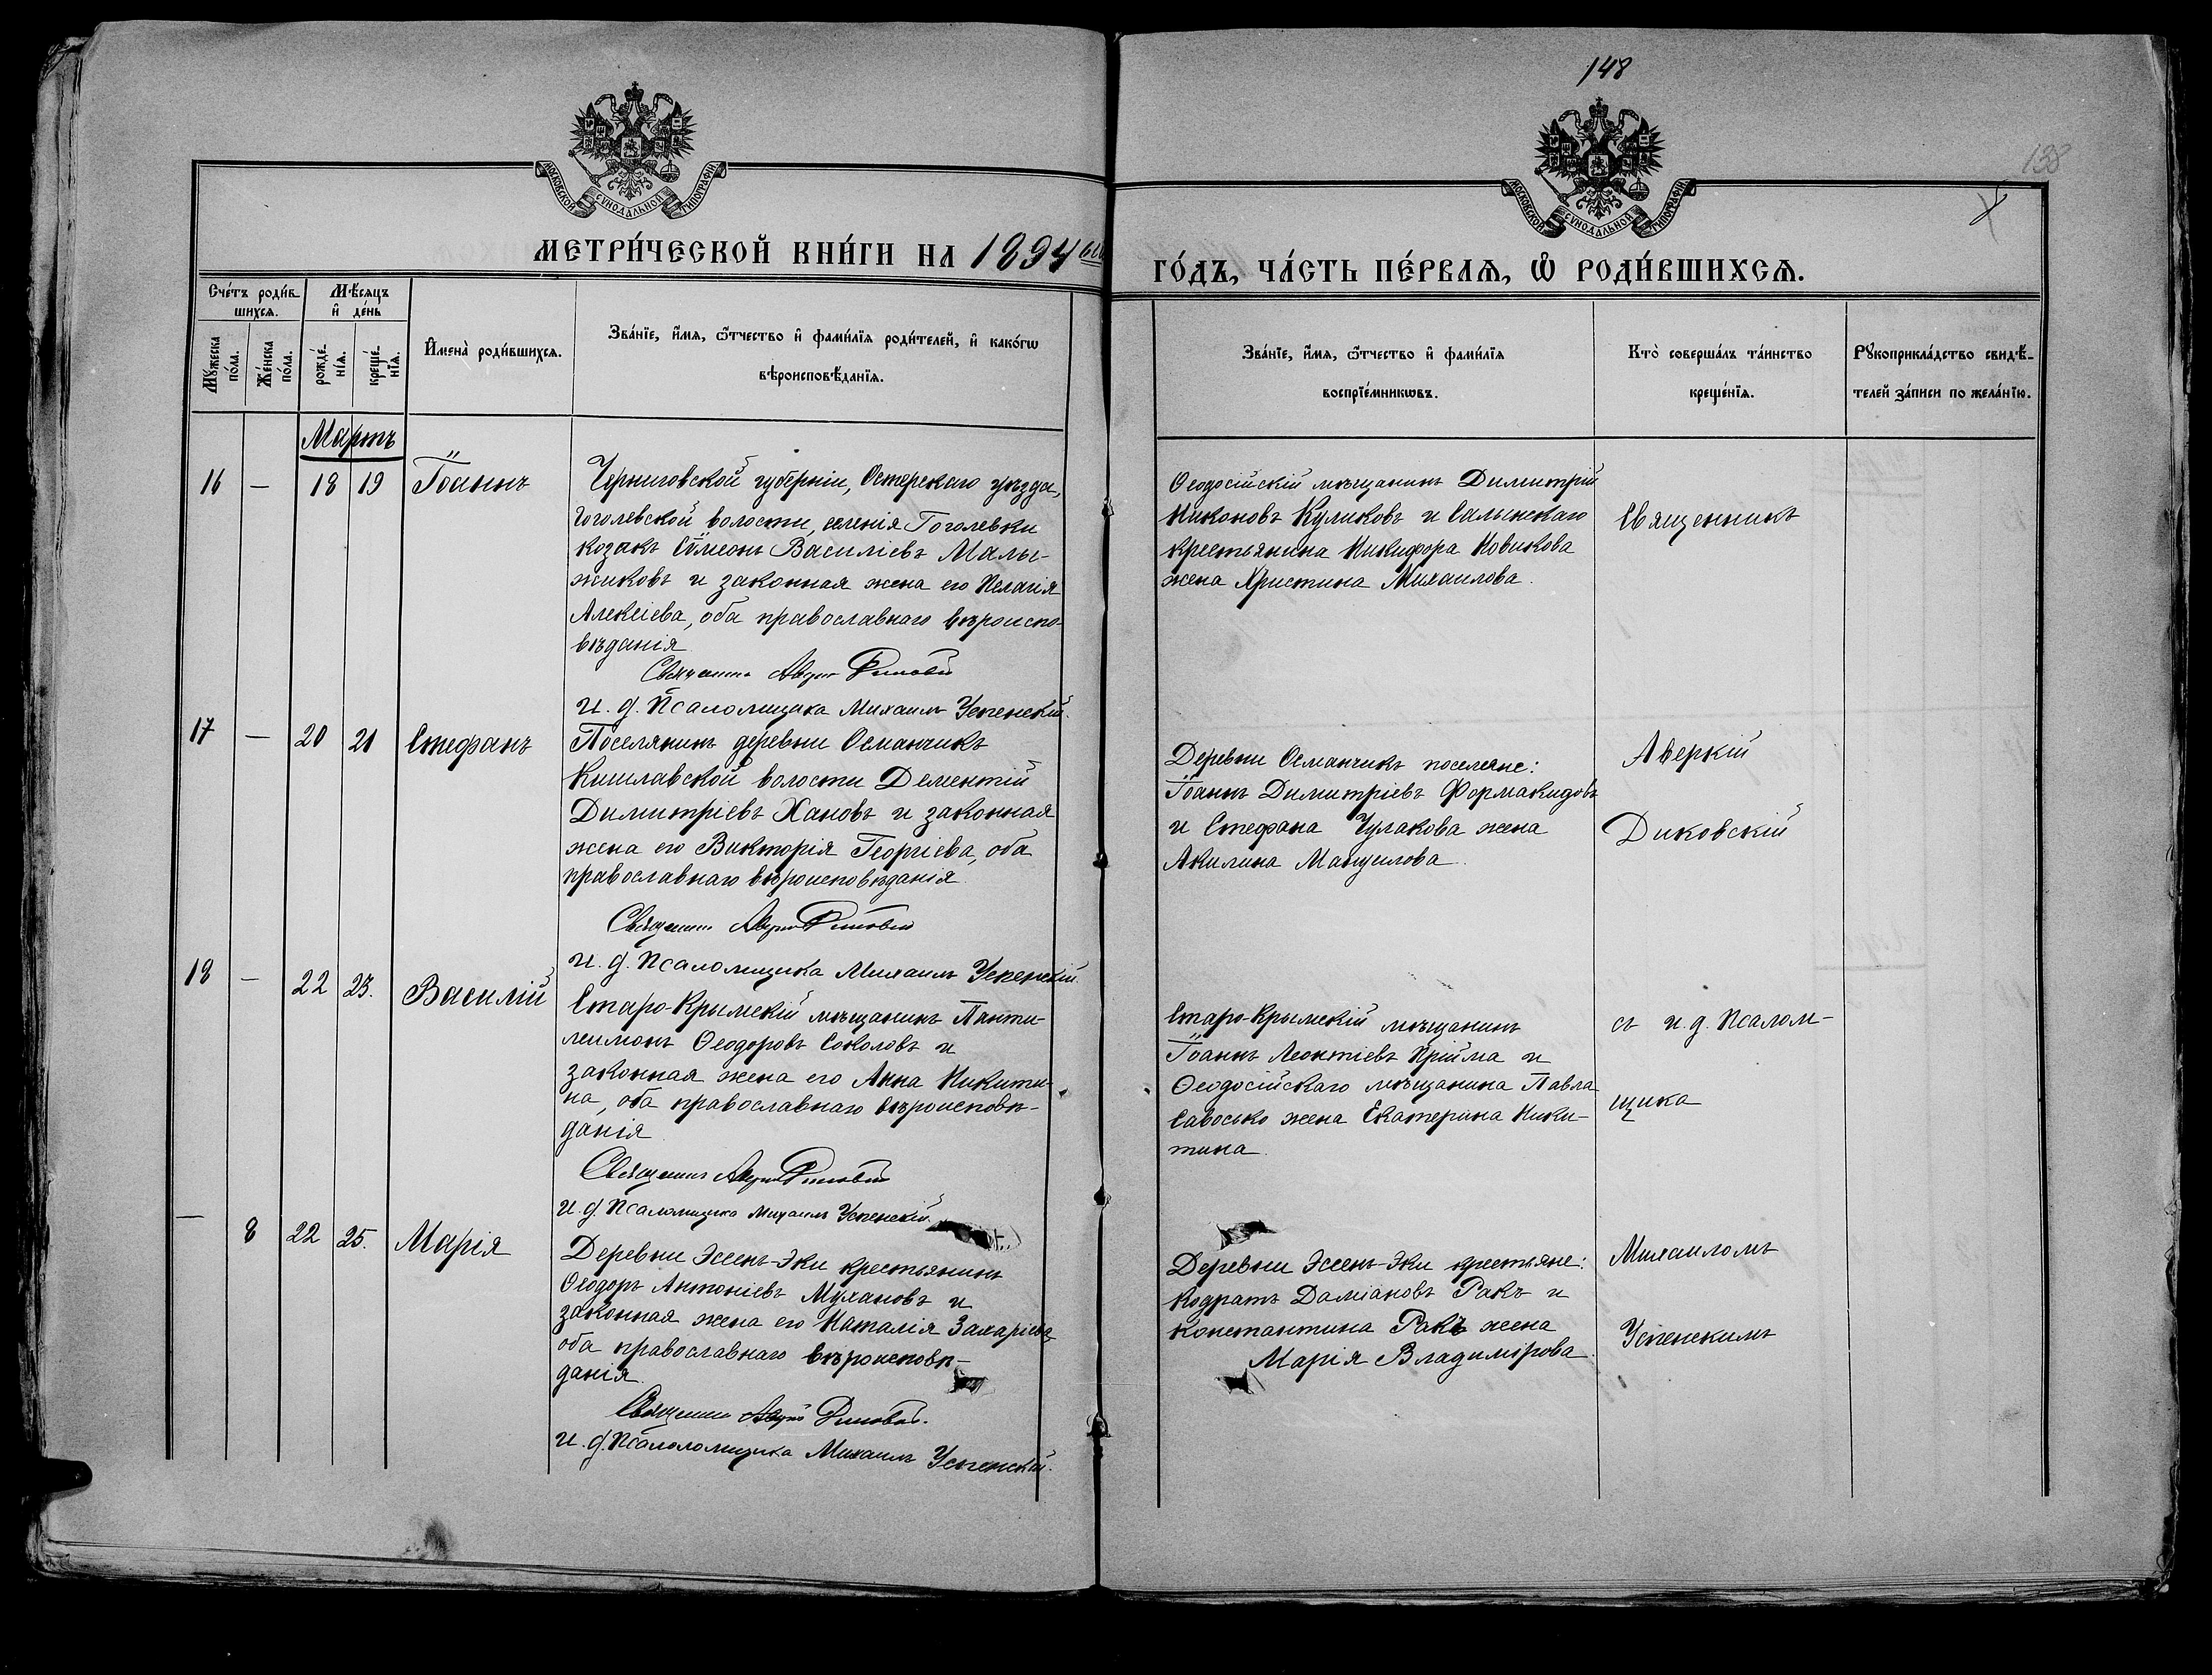 148
138
МОСКОВСКОЙ СУНОДАЛЬНОЙ ТИПОГРАФІИ.
МОСКОВСКОЙ СУНОДАЛЬНОЙ ТИПОГРАФІИ.
МЕТРИ́ЧЕСКОЙ КНИ́ГИ НА 1894 ый
ГО́ДЪ, ЧА́СТЬ ПЕ́РВАѦ, Ѡ҆ РОДИ́ВШИХСѦ.
Сче́тъ роди́в-
шихсѧ.
Мꙋ́жеска
по́ла.
Же́нска
по́ла.
Мѣ́сѧцъ
и҆ де́нь
рожде́-
нїѧ.
креще́-
нїѧ.
И҆мена̀ роди́вшихсѧ.
Зва́нїе, и҆́мѧ, ѻ҆́тчество и҆ фами́лїѧ роди́телей, и҆ како́гѡ
вѣроисповѣ́данїѧ.
Зва́нїе, и҆́мѧ, ѻ҆́тчество и҆ фами́лїѧ
воспрїе́мникѡвъ.
Кто̀ соверша́лъ та́инство
креще́нїѧ.
Рꙋкоприкла́дство свидѣ́-
телей за́писи по жела́нїю.
Мартъ
16 — 18 19 Іоаннъ
Черниговской губерніи, Остерскаго уѣзда,
Гоголевской волости, селенія Гоголевки
козакъ Сѷмеонъ Василіевъ Малы-
жиковъ и законная жена его Пелагія
Алексіева, оба православнаго вѣроиспо-
вѣданія
Священникъ Аверкій Диковскій
И. д. Псаломщика Михаилъ Успенскій.
Ѳеодосійскій мѣщанинъ Димитрій
Никоновъ Куликовъ и Салынскаго
крестьянина Никифора Новикова
жена Христина Михаилова.
Священникъ
17 — 20 21 Стефанъ
Поселянинъ деревни Османчикъ
Кишлавской волости Дементій
Димитріевъ Хановъ и законная
жена его Викторія Георгіева, оба
православнаго вѣроисповѣданія.
Священникъ Аверкій Диковскій
И. д. Псаломщика Михаилъ Успенскій.
Деревни Османчикъ поселяне:
Іоаннъ Димитріевъ Формакидовъ
и Стефана Чулакова жена
Акилина Мануилова.
Аверкій
Диковскій
18 — 22 23. Василій
Старо-Крымскій мѣщанинъ Панти-
леимонъ Ѳеодоровъ Соколовъ и
законная жена его Анна Никити-
на, оба православнаго вѣроисповѣ-
данія
Священникъ Аверкій Диковскій
И. д. Псаломщика Михаилъ Успенскій.
Старо-Крымскій мѣщанинъ
Іоаннъ Леонтіевъ Прійма и
Ѳеодосійскаго мѣщанина Павла
Савосько жена Екатерина Ники-
тина.
съ и. д. Псалом-
щика
— 8 22 25. Марія
Деревни Эссенъ-Эки крестьянинъ
Ѳеодоръ Антоніевъ Мухановъ и
законная жена его Наталія Захаріева
оба православнаго вѣроисповѣ-
данія.
Священникъ Аверкій Диковскій.
И. д. Псаломщика Михаилъ Успенскій.
Деревни Эссенъ-Эки крестьяне:
Кодратъ Даміановъ Ракъ и
Константина Ракъ жена
Марія Владимірова.
Михаиломъ
Успенскимъ